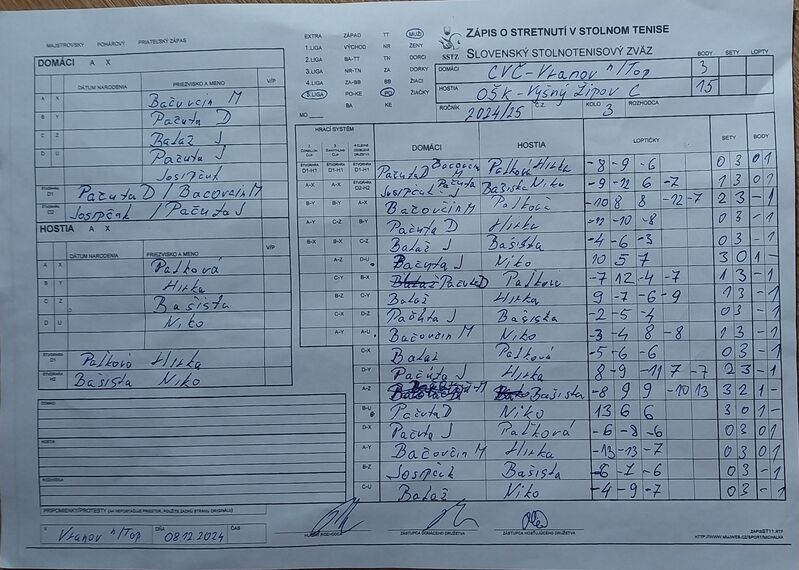 MAJSTROVSKÝ POHÁROVÝ PRIATEĽSKÝ ZÁPAS
DOMÁCI A X
DÁTUM NARODENIA PRIEZVISKO A MENO V/P
A X Bačovčin M
B Y Pačuta D
C Z Balaž J
D U Pačuta J
Josipčuk
ŠTVORHRA D1 Pačuta D / Bačovčin M
ŠTVORHRA D2 Josipčuk / Pačuta J
HOSTIA A X
DÁTUM NARODENIA PRIEZVISKO A MENO V/P
A X Paľková
B Y Hirka
C Z Bašista
D U Niko
ŠTVORHRA Paľková Hirka
ŠTVORHRA H2 Bašista Niko
DOMÁCI
HOSTIA
ROZHODCA
PRIPOMIENKY/PROTESTY (AK NEPOSTAČUJE PRIESTOR, POUŽITE ZADNÚ STRANU ORIGINÁLU)
V Vranov n/Top DŇA 08.12.2024 ČAS
EXTRA ZÁPAD TT MUŽI
1.LIGA VÝCHOD NR ŽENY
2.LIGA BA-TT TN DORCI
3.LIGA NR-TN ZA DORKY
4.LIGA ZA-BB BB ŽIACI
5.LIGA PO-KE PO ŽIAČKY
BA KE
MO
SSTZ
ZÁPIS O STRETNUTÍ V STOLNOM TENISE
SLOVENSKÝ STOLNOTENISOVÝ ZVÄZ
BODY SETY LOPTY
DOMÁCI CVČ-Vranov n/Top 3
HOSTIA OŠK-Vyšný Žipov C 15
ROČNÍK 2024/25 ČZ KOLO 3 ROZHODCA
HRACÍ SYSTÉM DOMÁCI HOSTIA LOPTIČKY SETY BODY
D1-H1 D1-H1 D1-H1 Pačuta D Bačovčin M Paľková Hirka -8 -9 -6 0 3 0 1
A-X A-X D2-H2 Josipčuk Pačuta Bašista Niko -9 -12 6 -7 1 3 0 1
B-Y B-Y A-X Bačovčin M Paľková -10 8 8 -12 -7 2 3 - 1
A-Y C-Z B-Y Pačuta D Hirka -11 -10 -8 0 3 - 1
B-X B-X C-Z Balaž J Bašista -4 -6 -3 0 3 - 1
A-Z D-U Pačuta J Niko 10 5 7 3 0 1 -
C-Y B-X Pačuta D Paľková -7 12 -4 -7 1 3 - 1
B-Z C-Y Balaž Hirka 9 -7 -6 -9 1 3 - 1
C-X D-Z Pačuta J Bašista -2 -5 -4 0 3 - 1
A-Y A-U Bačovčin M Niko -3 -4 8 -8 1 3 - 1
C-X Balaž Paľková -5 -6 -6 0 3 - 1
D-Y Pačuta J Hirka 8 -9 -11 7 -7 2 3 - 1
A-Z Bačovčin M Bašista -8 9 9 -10 13 3 2 1 -
B-U Pačuta D Niko 13 6 6 3 0 1 -
D-X Pačuta J Paľková -6 -8 -6 0 3 0 1
A-Y Bačovčin M Hirka -13 -13 -7 0 3 0 1
B-Z Josipčuk Bašista -7 -6 0 3 - 1
C-U Balaž Niko -4 -9 -7 0 3 - 1
HLAVNÝ ROZHODCA ZÁSTUPCA DOMÁCEHO DRUŽSTVA ZÁSTUPCA HOSŤUJÚCEHO DRUŽSTVA
ZAPISST11.RTF
HTTP://WWW.MUJWEB.CZ/SPORT/MICHALKA